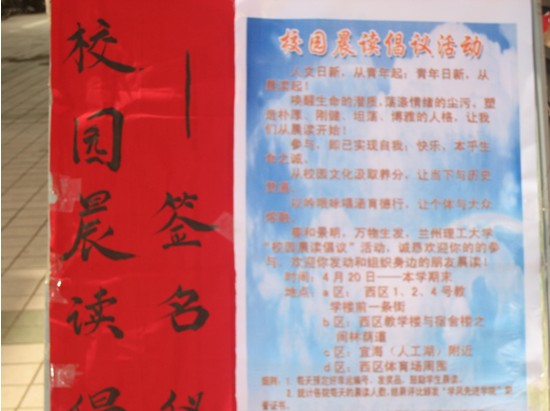 校园晨读倡
——签名仪
校园晨读倡议活动
人文日新，从青年起；青年日新，从
晨读起！
唤醒生命的潜质，荡涤情绪的尘污，塑
造朴厚、刚健、坦荡、博雅的人格，让我
们从晨读开始！
参与，即已实现自我；快乐，本乎生
命之诚。
从校园文化汲取养分，让当下与历史
以吟哦咏唱涵育德行，让个体与大众
春和景明，万物生发，兰州理工大学
“校园晨读倡议”活动，诚恳欢迎你的参
与，欢迎你发动和组织身边的朋友晨读！
时间：4月20日——本学期末
地点：a区：西区1、2、4号教
学楼前一条街
b区：西区教学楼与宿舍楼之
间林荫道
c区：宜海（人工湖）附近
d区：西区体育场周围